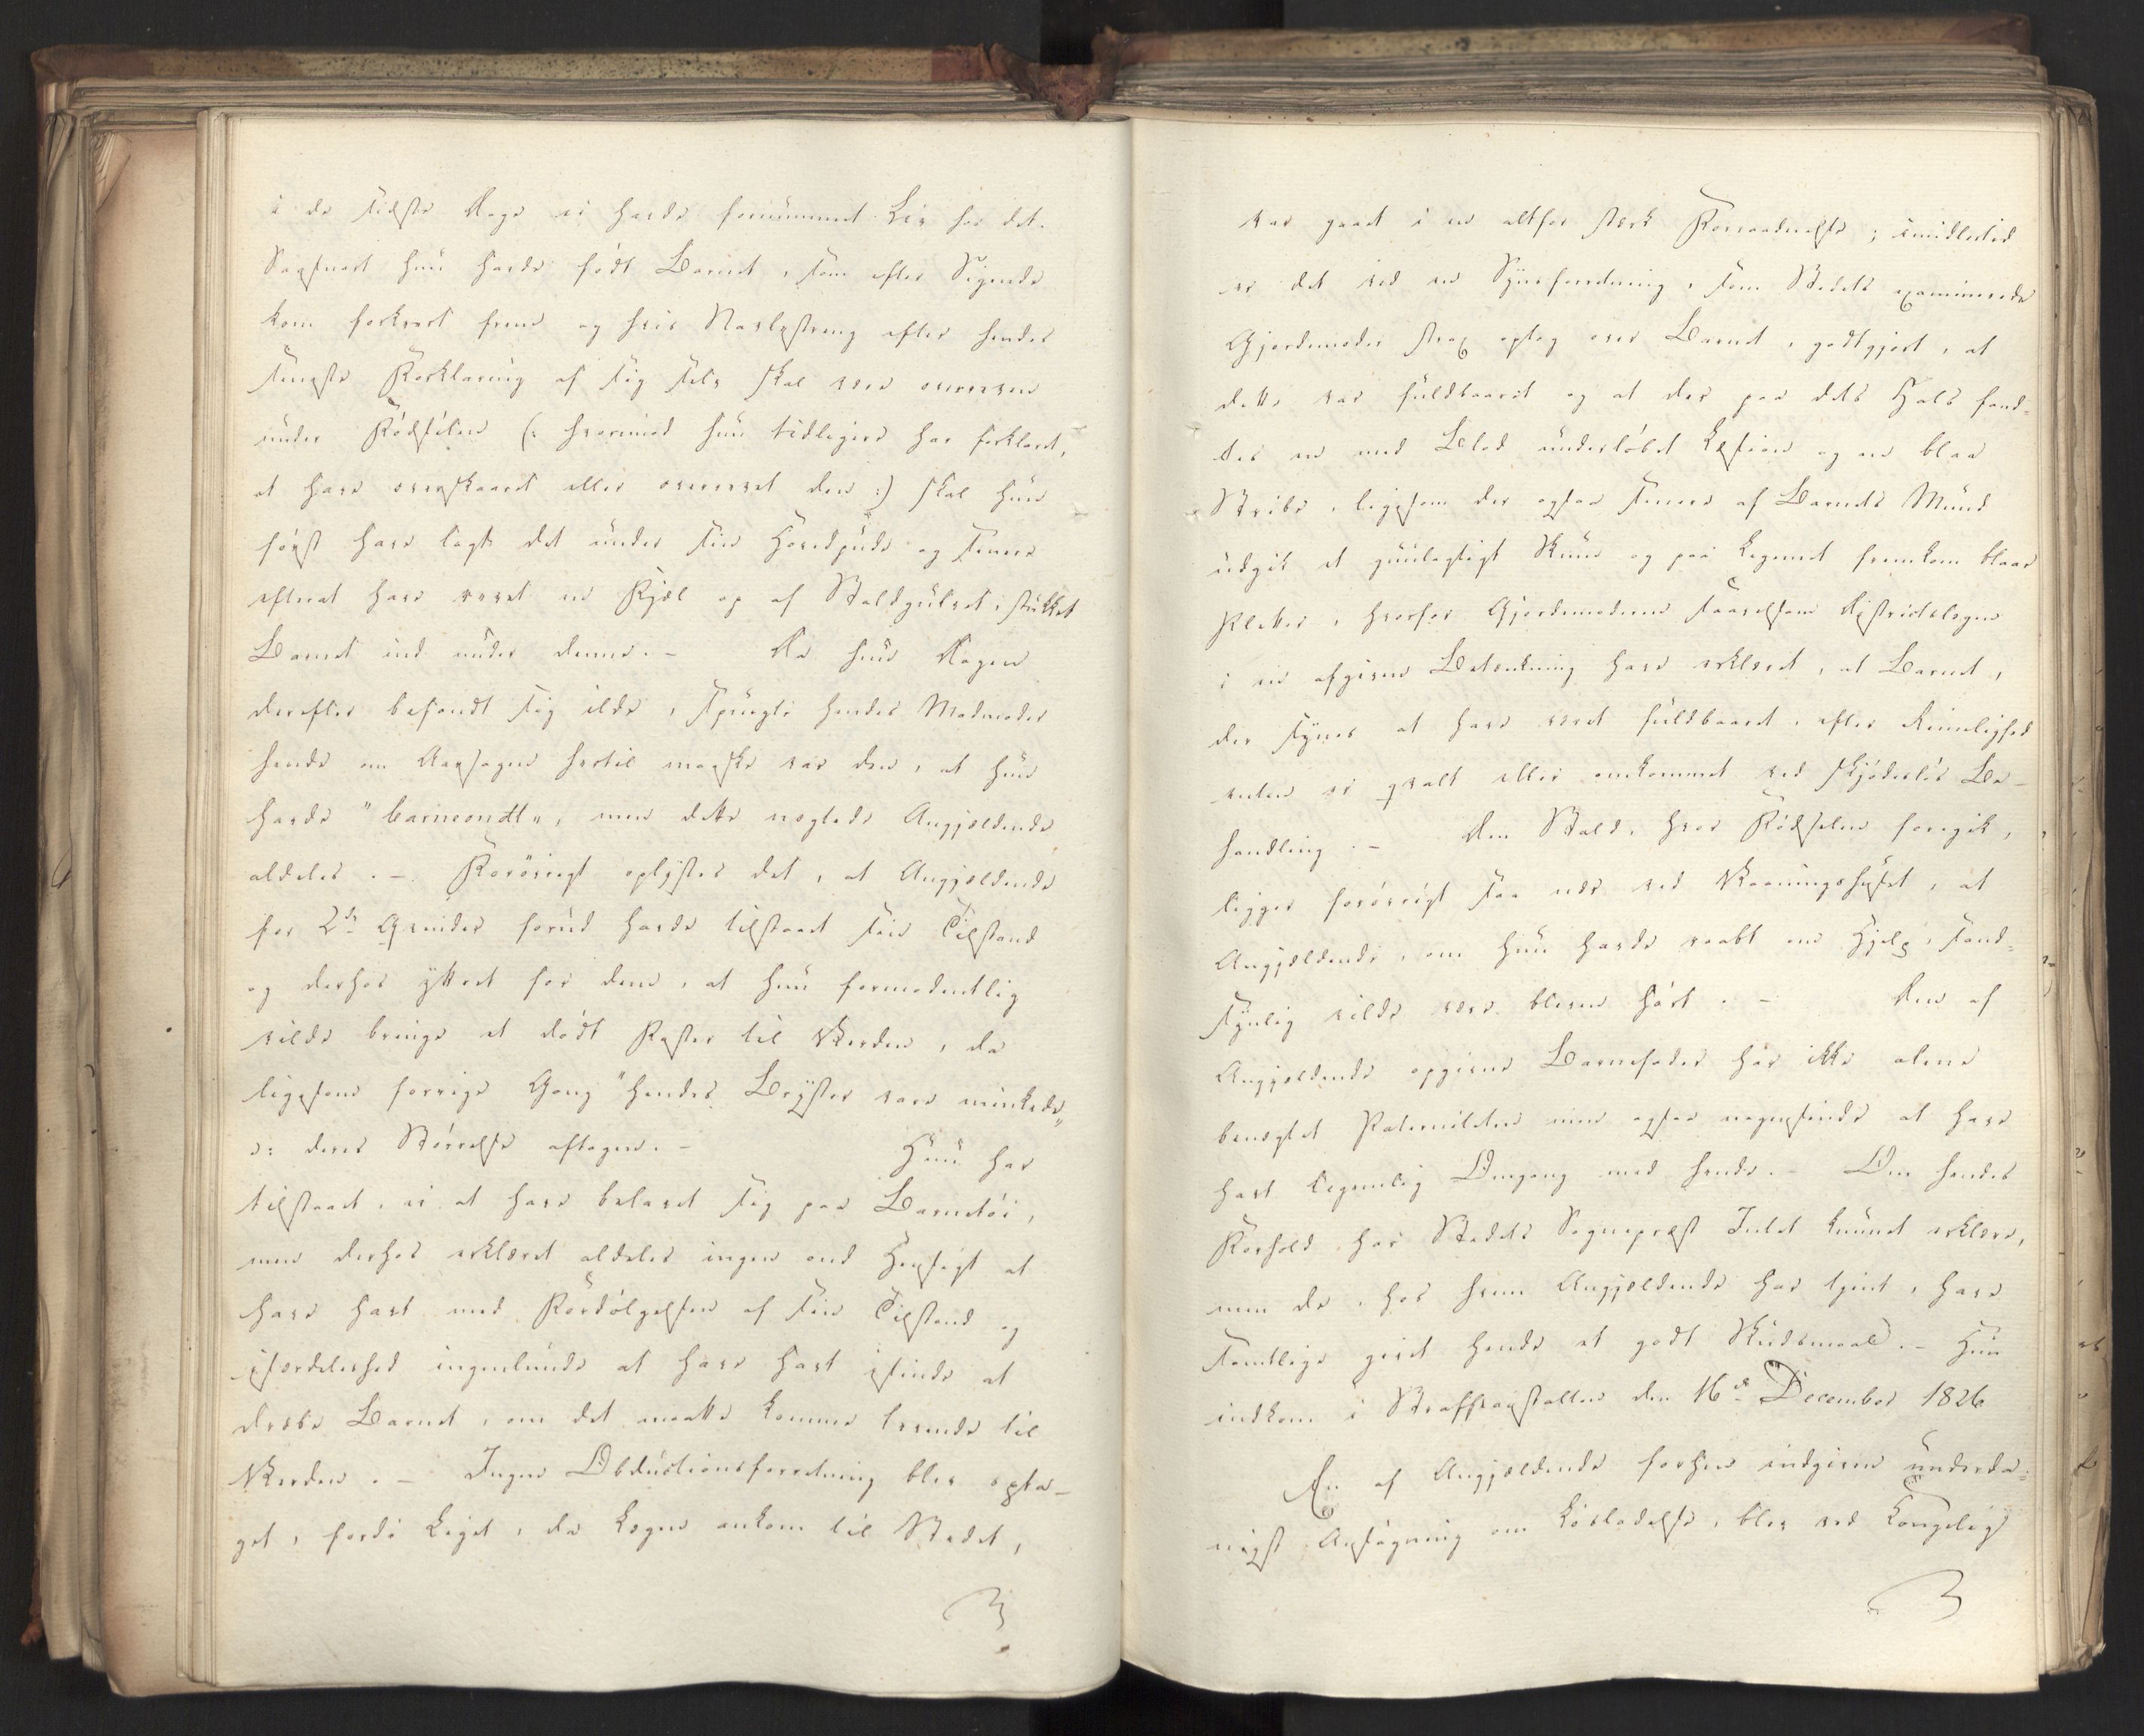 i de sidste Dage ei havde fornummet Liv hos det.
Saasnart hun havde født Barnet, som efter Sigende
kom forkeert frem og hvis Navlestreng efter hendes
seneste Forklaring af sig selv skal være overreven
under Fødselen (: hvorimod hun tidligere har forklaret,
at have overskaaret eller overrevet den :) skal hun
først have lagt det under sin Hovedpude og senere
efterat have revet en Fjæl op af Staldgulvet, stukket
Barnet ind under denne. – Da hun Dagen
derefter befandt sig ilde, spurgte hendes Madmoder
hende om Aarsagen hertil maaske var den, at hun
havde "barneondt", men dette negtede Angjældende
aldeles. – Forøvrigt oplystes det, at Angjældende
for 2de Qvinder forud havde tilstaaet sin Tilstand
og derhos yttret for dem, at hun formodentlig
vilde bringe et dødt Foster til Verden, da
ligesom forrige Gang "hendes Bryster vare minkede"
ↄ: deres Størrelse aftagen. – Hun har
tilstaaet, ei at have belavet sig paa Barnetøi,
men derhos erklæret aldeles ingen ond Hensigt at
have havt med Fordølgelsen af sin Tilstand og
isærdeleshed ingenlunde at have havt isinde at
dræbe Barnet, om det maatte komme levende til
Verden. – Ingen Obductionsforretning blev opta-
get, fordi Liget, da Lægen ankom til Stedet,
var gaaet i en altfor stærk Forraadnelse; imidlertid
er det ved en Synsforretning, som Stedets examinerede
Gjordemoder strax optog over Barnet, godtgjort, at
dette var fuldbaaret og at der paa dets Hals fand-
tes en med Blod underløbet Læsion og en blaa
Stribe, ligesom der ogsaa senere af Barnets Mund
udgik et guulagtigt Skum og paa Legemet fremkom blaae
Pletter, hvorfor Gjordemoderen saavelsom Districtslægen
i en afgiven Betænkning have erklæret, at Barnet,
der synes at have været fuldbaaret, efter Rimelighed
enten er qvalt eller omkommet ved skjødesløs Be-
handling. – Den Stald, hvor Fødselen foregik,
ligger forøvrigt saa nær ved Vaaningshuset, at
Angjældende, om hun havde raabt om Hjelp, sand-
synlig vilde være bleven hørt. – Den af
Angjældende opgivne Barnefader har ikke alene
benegtet Paterniteten men ogsaa nogensinde at have
havt legemlig Omgang med hende. – Om hendes
Forhold har Stedets Sognepræst Intet kunnet erklære,
men de, hos hvem Angjældende har tjent, have
samtlige givet hende et godt Skudsmaal. – Hun
indkom i Straffeanstalten den 16de December 1826
En af Angjældende forhen indgiven underda-
nigst Ansøgning om Løsladelse, blev ved Kongelig